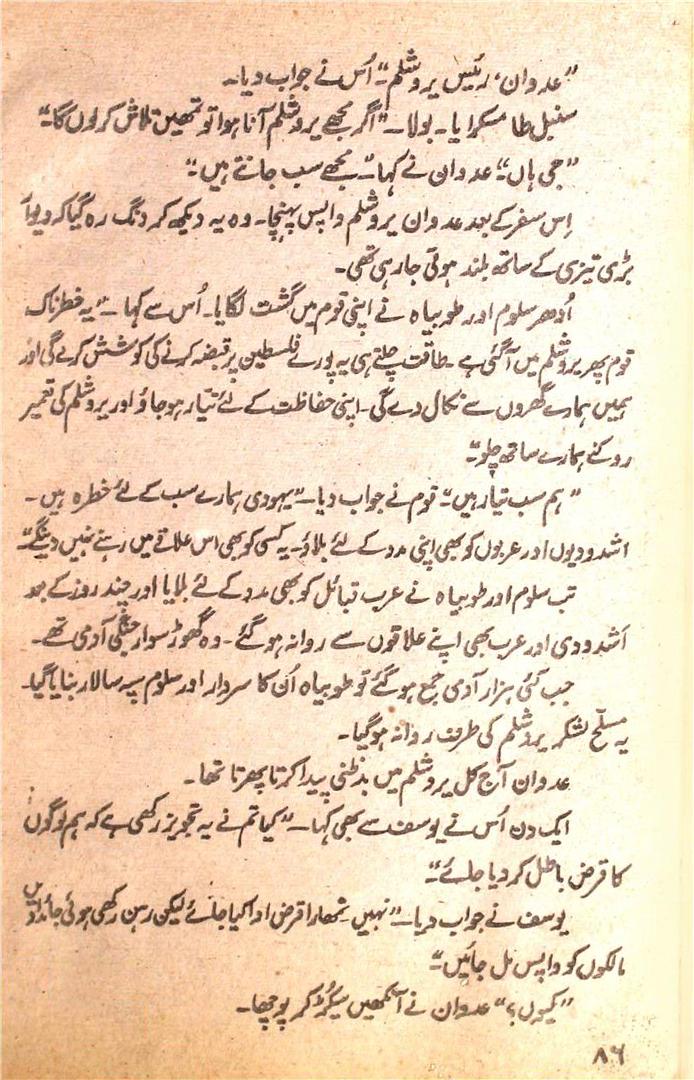 ”عدوان، رئیس یروشلم“ اُس نے جواب دیا۔
سنبل طا مسکرایا۔ بولا۔ ”اگر مجھے یروشلم آنا ہوا تو تمھیں تلاش کر لوں گا“
”جی ہاں“ عدوان نے کہا۔ ”مجھے سب جانتے ہیں“
اِس سفر کے بعد عدوان یروشلم واپس پہنچا۔ وہ یہ دیکھ کر دنگ رہ گیا کہ دیوار
بڑی تیزی کے ساتھ بلند ہوتی جا رہی تھی۔
اُدھر سلوم اور طوبیاہ نے اپنی قوم میں گشت لگایا۔ اُس سے کہا۔ ”یہ خطرناک
قوم پھر یروشلم میں آ گئی ہے۔ طاقت پاتے ہی یہ پورے فلسطین پر قبضہ کرنے کی کوشش کرے گی اور
ہمیں ہمارے گھروں سے نکال دے گی۔ اپنی حفاظت کے لئے تیار ہو جاؤ اور یروشلم کی تعمیر
روکنے ہمارے ساتھ چلو“
”ہم سب تیار ہیں“ قوم نے جواب دیا۔ ”یہودی ہمارے سب کے لئے خطرہ ہیں۔
اشدودیوں اور عربوں کو بھی اپنی مدد کے لئے بلاؤ۔ یہ کسی کو بھی اس علاقے میں رہنے نہیں دینگے“
تب سلوم اور طوبیاہ نے عرب قبائل کو بھی مدد کے لئے بلایا اور چند روز کے بعد
اشدودی اور عرب بھی اپنے علاقوں سے روانہ ہو گئے۔ وہ گھوڑ سوار جنگی آدمی تھے۔
جب کئی ہزار آدمی جمع ہو گئے تو طوبیاہ اُن کا سردار اور سلوم سپہ سالار بنایا گیا۔
یہ مسلّح لشکر یروشلم کی طرف روانہ ہو گیا۔
عدوان آج کل یروشلم میں بدظنی پیدا کرتا پھرتا تھا۔
ایک دن اُس نے یوسف سے بھی کہا۔ ”کیا تم نے یہ تجویز رکھی ہے کہ ہم لوگوں
کا قرض باطل کر دیا جائے“
یوسف نے جواب دیا۔ ”نہیں۔ تمھارا قرض ادا کیا جائے لیکن رہن رکھی ہوئی جائدادیں
مالکوں کو واپس مل جائیں“
”کیوں؟“ عدوان نے آنکھیں سیکڑ کر پوچھا۔
۸۶